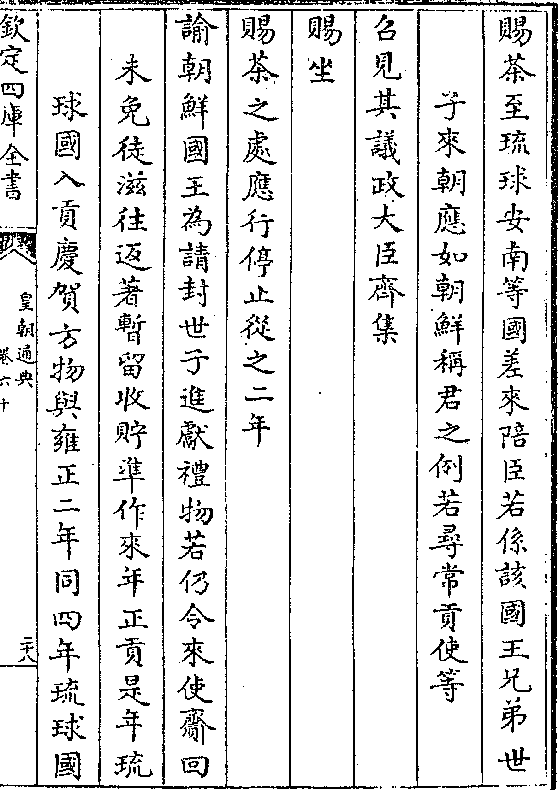 賜茶至琉球安南等國差來陪臣若係該國王兄弟世
子來朝應如朝鮮稱君之例若尋常貢使等
召見其議政大臣齊集
賜坐
賜茶之處應行停止從之二年
諭朝鮮國王為請封世子進獻禮物若仍令來使齎回
未免徒滋往返著暫留收貯準作來年正貢是年琉
球國入貢慶賀方物與雍正二年同四年琉球國
欽定四庫全書
皇朝通典
卷六十
二十八